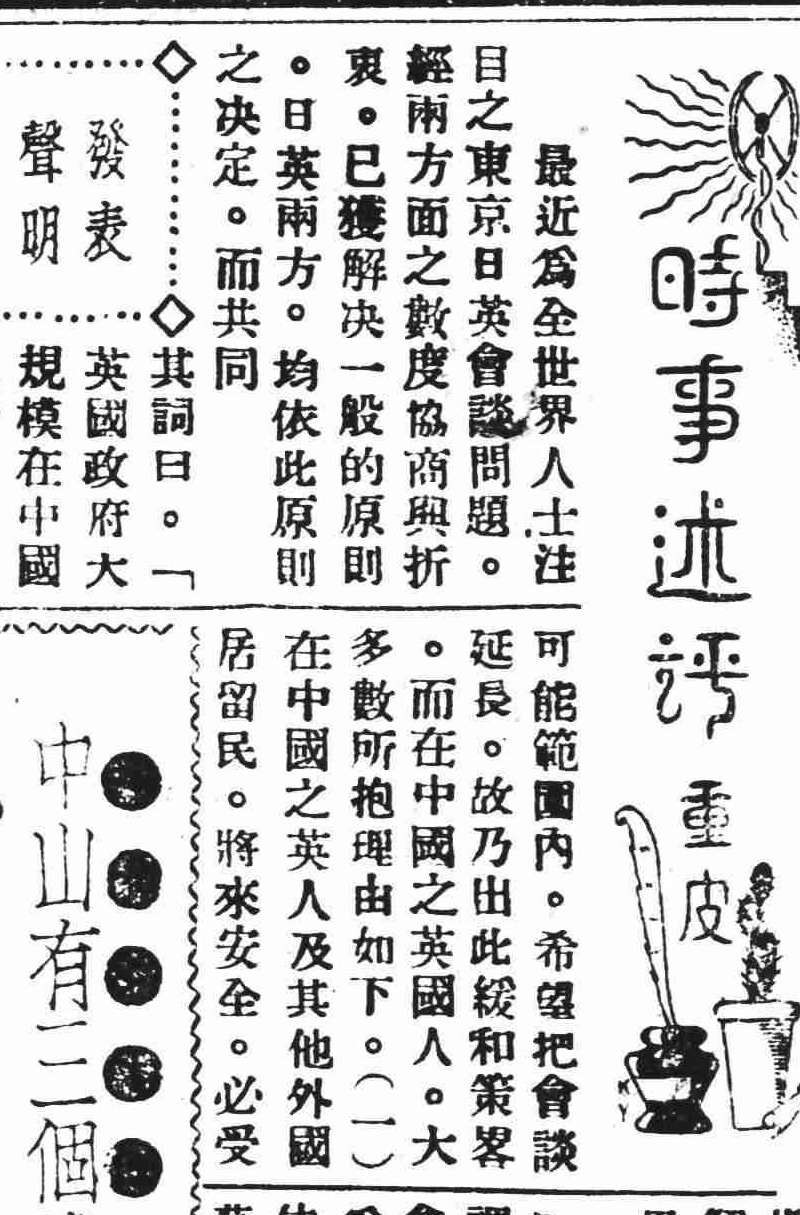 時事述評
重皮
最近為全世界人士注
目之東京日英會談問題。
經兩方面之數度協商與折
衷。已獲解决一般的原則
。日英兩方。均依此原則
之决定。而共同
發表
聲明
其詞曰。「
英國政府大
規模在中國
可能範圍內。希望把會談
延長。故乃出此緩和策畧
。而在中國之英國人。大
多數所抱理由如下。(一)
在中國之英人及其他外國
居留民。將來安全。必受
中山有三個